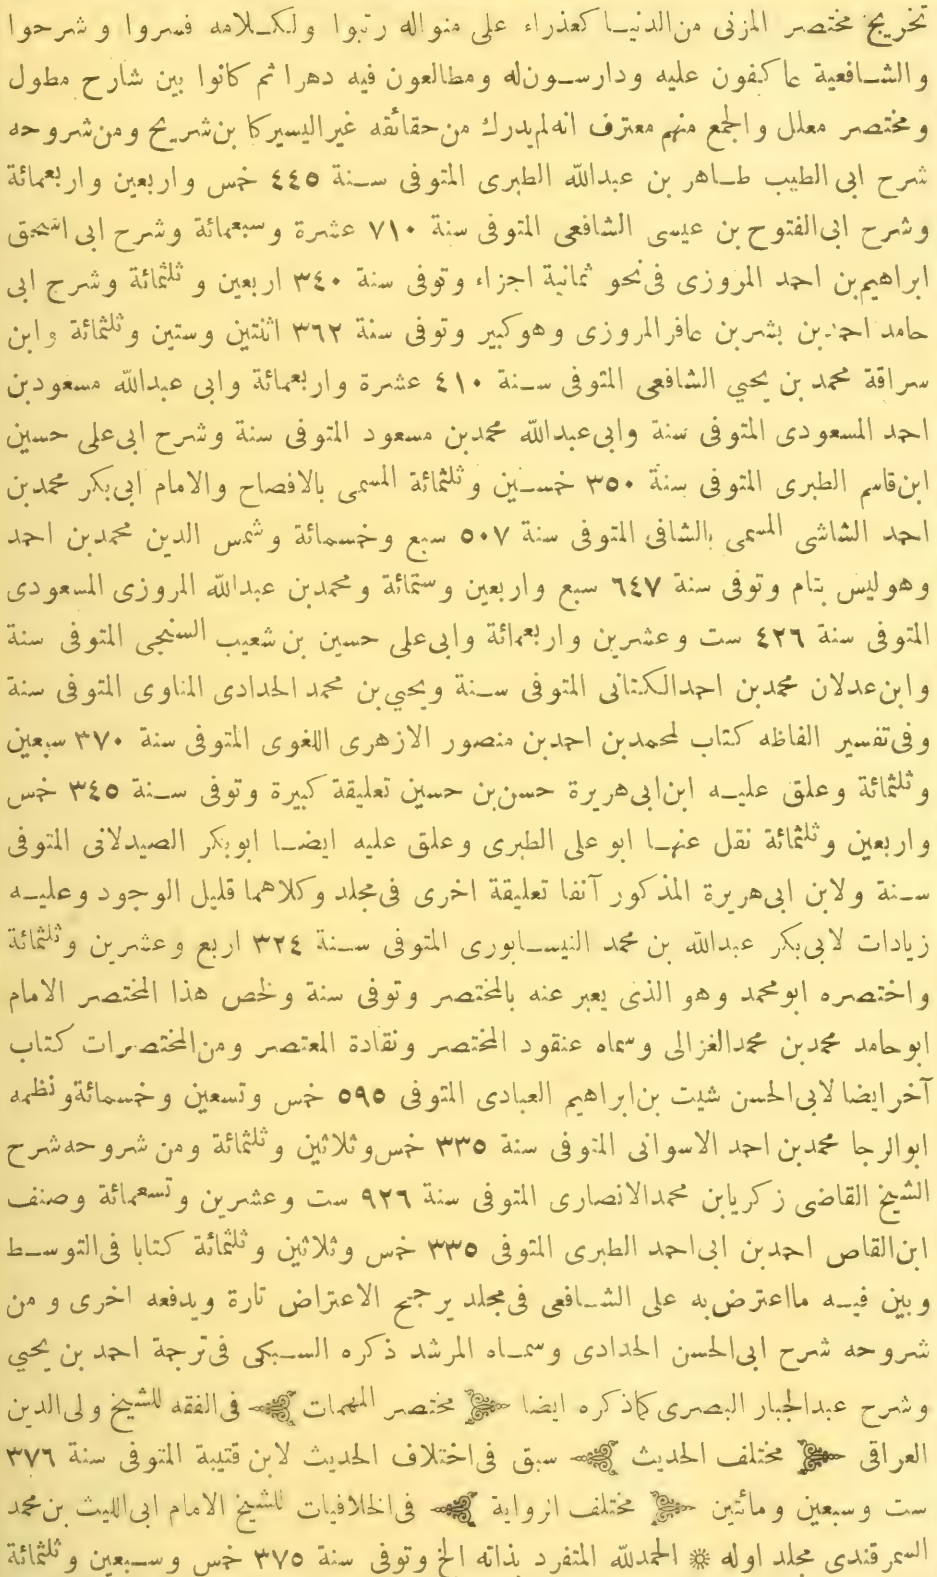 تخريج مختصر المزنى من الدنيا كعذراء على منواله رتبوا ولكلامه فسروا و شرحوا
و الشافعية عاكفون عليه ودارسون له ومطالعون فيه دهرا ثم كانوا بين شارح مطول
و مختصر معلل والجمع منهم معترف انه لم يدرك من حقائقه غير اليسير كا بن شريح و من شروحه
شرح ابى الطيب طاهر بن عبدالله الطبرى المتوفى سنة ٤٤٥ خمس و اربعين و اربعمائة
و شرح ابى الفتوح بن عيسى الشافعى المتوفى سنة ٧١٠ عشرة و سبعمائة وشرح ابى اسحق
ابراهيم بن احمد المروزى فى نحو ثمانية اجزاء وتوفى سنة ٣٤٠ اربعين و ثلثمائة وشرح ابى
حامد احمد بن بشر بن عافر المروزى و هو كبير وتوفى سنة ٣٦٢ اثنتين وستين و ثلثمائة و ابن
سراقة محمد بن يحيي الشافعى المتوفى سنة ٤١٠ عشرة واربعمائة وابى عبدالله مسعود بن
احمد المسعودى المتوفى سنة وابى عبدالله محمد بن مسعود المتوفى سنة وشرح ابى على حسين
ابن قاسم الطبرى المتوفى سنة ٣٥٠ خمسين و ثلثمائة المسمى بالافصاح والامام ابى بكر محمد بن
احمد الشاشى المسمى بالشافى المتوفى سنة ٥٠٧ سبع وخمسمائة و شمس الدين محمد بن احمد
وهو ليس بتام و توفى سنة ٦٤٧ سبع و اربعين و ستمائة و محمد بن عبدالله المروزى المسعودى
المتوفى سنة ٤٢٦ ست و عشرين و اربعمائة وابى على حسين بن شعيب السنجى المتوفى سنة
و ابن عدلان محمد بن احمد الكتانى المتوفى سنة ويحيي بن محمد الحدادى المناوى المتوفى سنة
وفى تفسير الفاظه كتاب لمحمد بن احمد بن منصور الازهرى اللغوى المتوفى سنة ٣٧٠ سبعين
و ثلثمائة وعلق عليه ابن ابى هريرة حسن بن حسين تعليقة كبيرة وتوفى سنة ٣٤٥ خمس
و اربعين و ثلثمائة نقل عنها ابو على الطبرى وعلق عليه ايضا ابو بكر الصيدلانى المتوفى
سنة ولابن ابى هريرة المذكور آنفا تعليقة اخرى فى مجلد وكلاهما قليل الوجود وعليه
زيادات لابى بكر عبدالله بن محمد النيسابورى المتوفى سنة ٣٢٤ اربع و عشرين و ثلثمائة
و اختصره ابو محمد وهو الذى يعبر عنه بالمختصر وتوفى سنة ولخص هذا المختصر الامام
ابو حامد محمد بن محمد الغزالى وسماه عنقود المختصر و نقادة المعتصر و من المختصرات كتاب
آخر ايضا لابى الحسن شيت بن ابراهيم العبادى المتوفى ٥٩٥ خمس و تسعين و خمسمائة و نظمه
ابو الرجا محمد بن احمد الاسوانى المتوفى سنة ٣٣٥ خمس و ثلاثين و ثلثمائة و من شروحه شرح
الشيخ القاضى زكريا بن محمد الانصارى المتوفى سنة ٩٢٦ ست و عشرين و تسعمائة وصنف
ابن القاص احمد بن ابى احمد الطبرى المتوفى ٣٣٥ خمس و ثلاثين و ثلثمائة كتابا فى التوسط
و بين فيه ما اعترض به على الشافعى فى مجلد يرجح الاعتراض تارة ويدفعه اخرى و من
شروحه شرح ابى الحسن الحدادى وسماه المرشد ذكره السبكى فى ترجمة احمد بن يحيي
و شرح عبدالجبار البصرى كما ذكره ايضا مختصر المهمات فى الفقه للشيخ ولى الدين
العراقى مختلف الحديث سبق فى اختلاف الحديث لابن قتيبة المتوفى سنة ٣٧٦
ست و سبعين و مأتين مختلف الرواية فى الخلافيات للشيخ الامام ابى الليث بن محمد
السمرقندى مجلد اوله ۞ الحمدلله المتفرد بذاته الخ وتوفى سنة ٣٧٥ خمس و سبعين و ثلثمائة